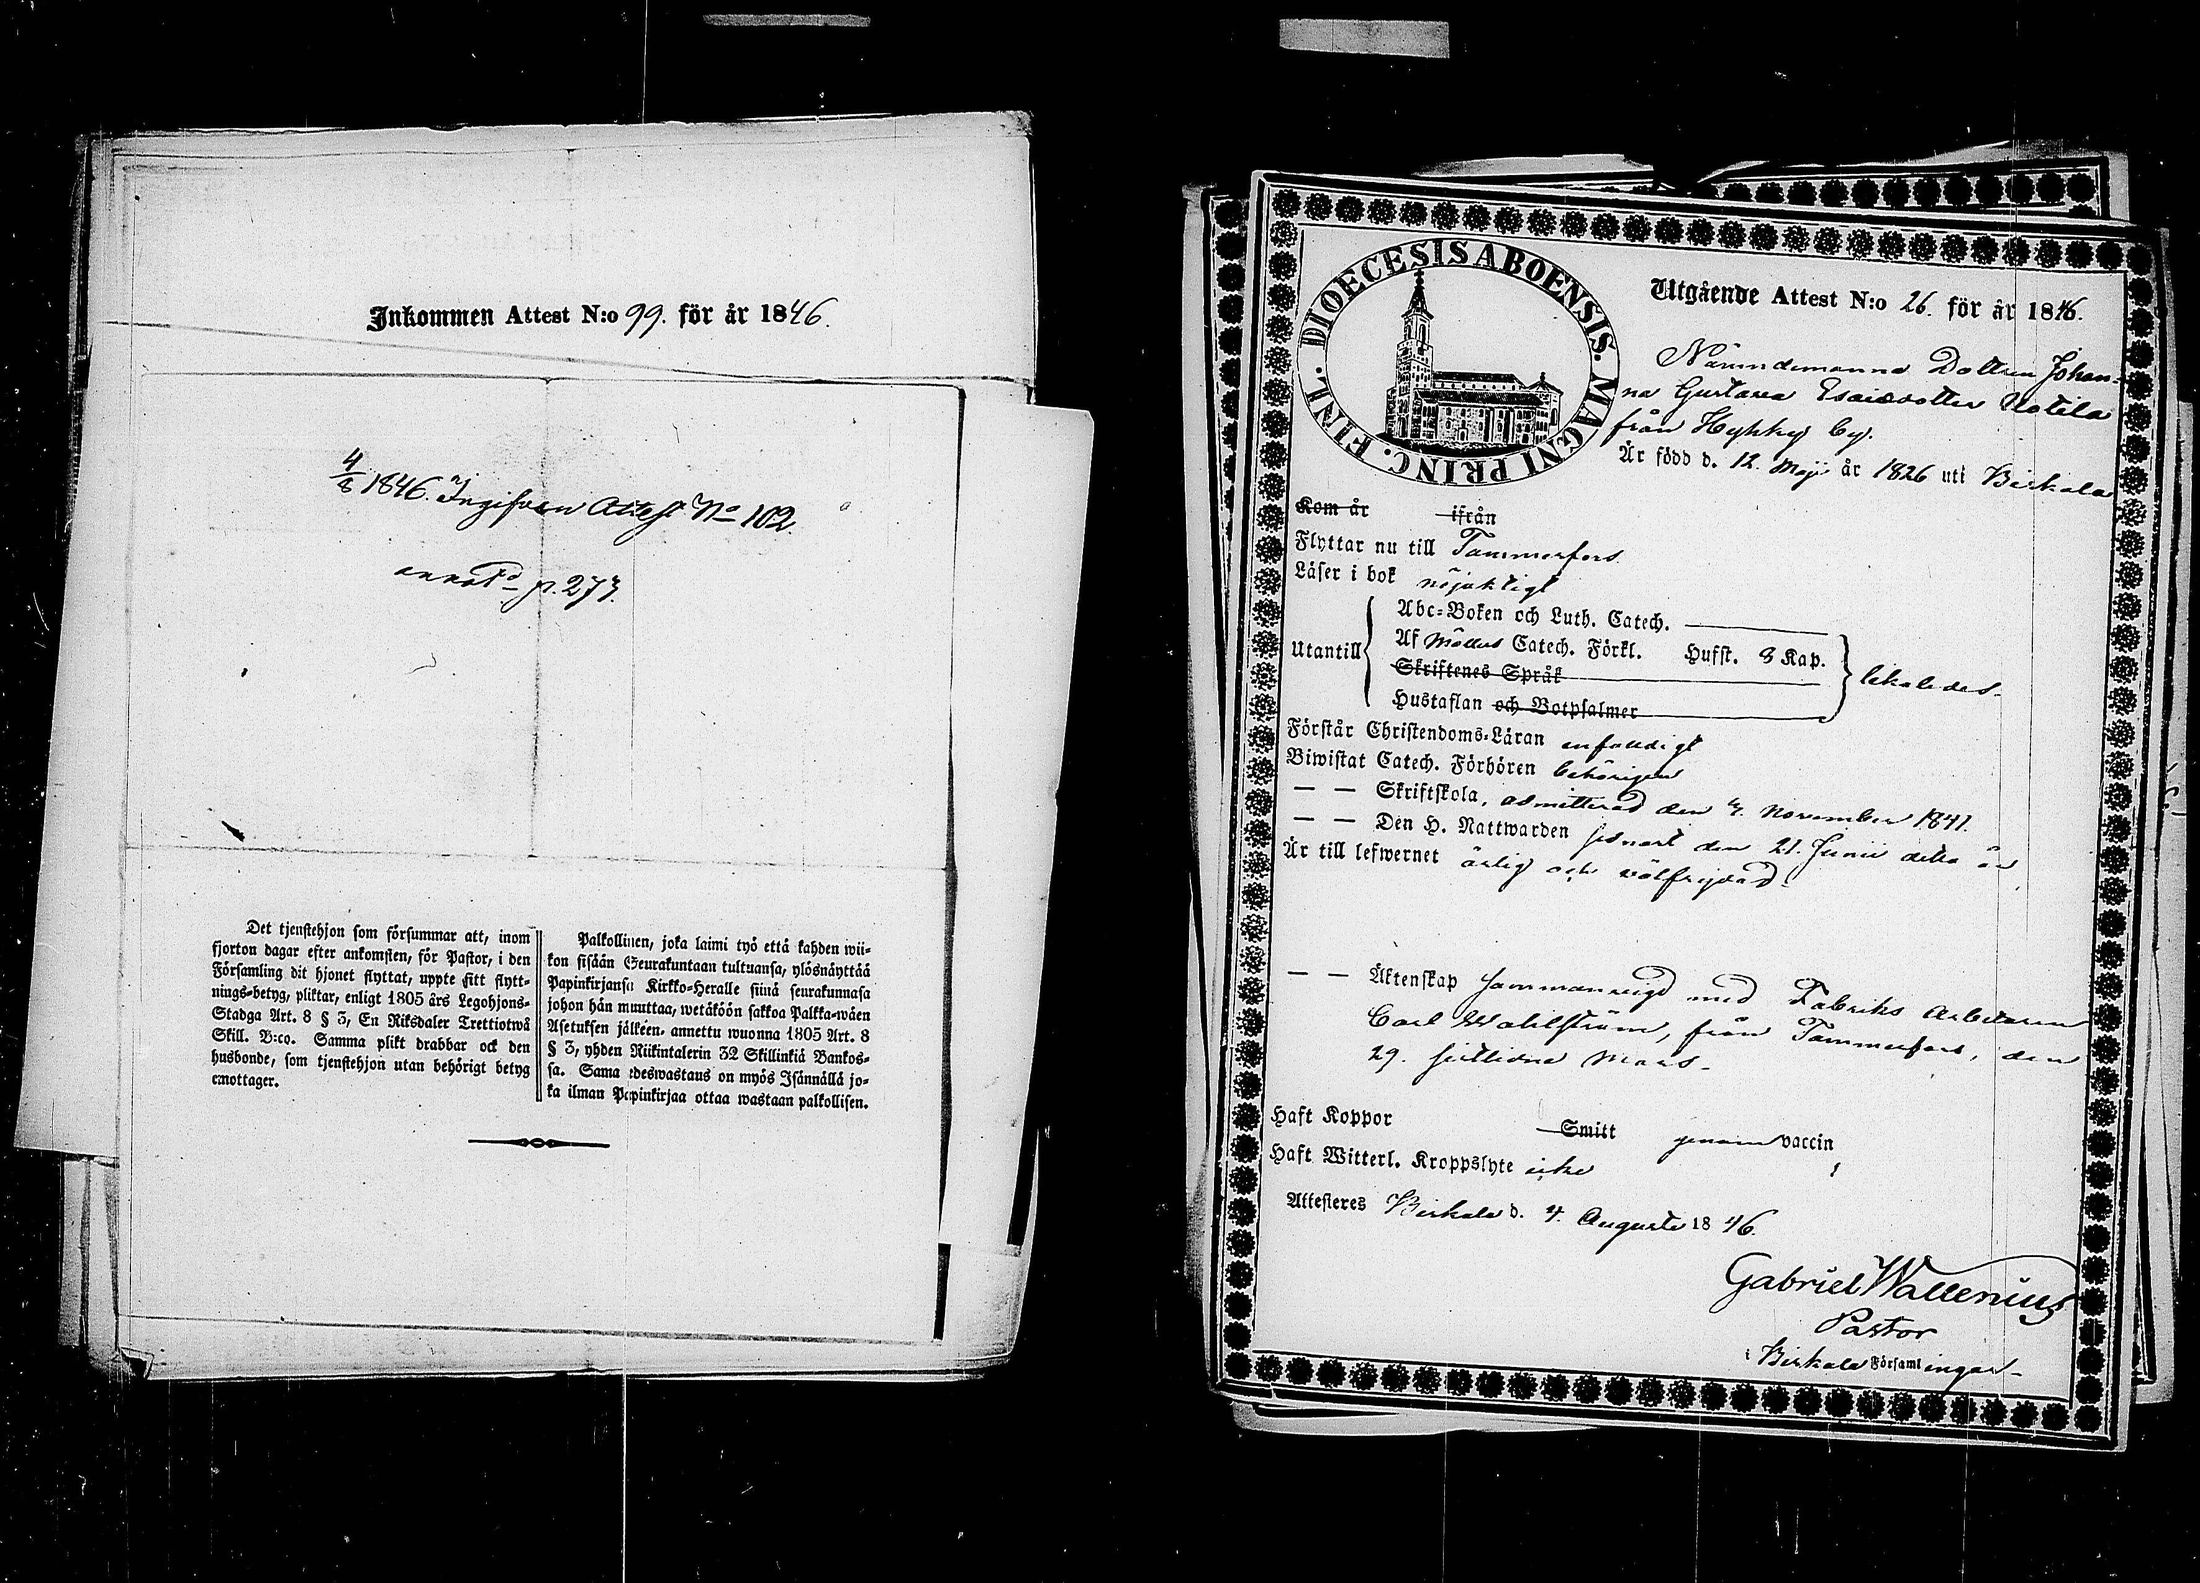 Inkommen Attest N:o 99. för år 1846.
4/8 1846. Ingifven Attest No 102.
annotd p. 273.
Det tjenstehjon som försummar att, inom
fjorton dagar efter ankomsten, för Pastor, i den
Församling dit hjonet flyttat, uppte sitt flytt-
nings-betyg, pliktar, enligt 1805 års Legohjons-
Stadga Art. 8 § 3, En Riksdaler Trettiotwå
Skill. B:co. Samma plikt drabbar ock den
husbonde, som tjenstehjon utan behörigt betyg
emottager.
Palkollinen, joka laimi työ että kahden wii-
kon sisään Seurakuntaan tultuansa, ylösnäyttää
Papinkirjansa Kirkko-Heralle siinä seurakunnasa
johon hän muuttaa, wetäköön sakkoa Palkka-wäen
Asetuksen jälkeen annettu wuonna 1805 Art. 8
§ 3, yhden Riikintalerin 32 Skillinkiä Bankos-
sa. Sama edeswastaus on myös Isännällä jo-
ka ilman Papinkirjaa ottaa wastaan palkollisen.
DIOECESIS ABOENSIS. MAGNI PRINC. FINL.
Utgående Attest N:o 26. för år 1846.
Nämndemanns Dottren Johan-
na Gustava Esaiædotter Uotila
från Hyhky by.
Är född d. 12. Maji år 1826 uti Birkala
Kom år ifrån
Flyttar nu till Tammerfors
Läser i bok nöjaktigt
Utantill
Abc-Boken och Luth. Catech.
Af Möllers Catech. Förkl. Hufst. 8 Kap.
Skriftenes Språk
Hustaflan och Botpsalmer
likaledes
Förstår Christendoms-Läran enfaldigt
Biwistat Catech. Förhören behörigen
— — Skriftskola, admitterad den 4. November 1841.
— — Den H. Nattwarden senast den 21. Junii detta år
Är till lefwernet ärlig och välfrejdad.
— — Äktenskap sammanvigd med Fabriks Arbetaren
Carl Wahlström, från Tammerfors, den
29. sistlidne Mars.
Haft Koppor Smitt genom vaccin
Haft Witterl. Kroppslyte icke
Attesteres Birkala d. 4. Augusti 1846.
Gabriel Wallenius
Pastor
i Birkala Församlingar